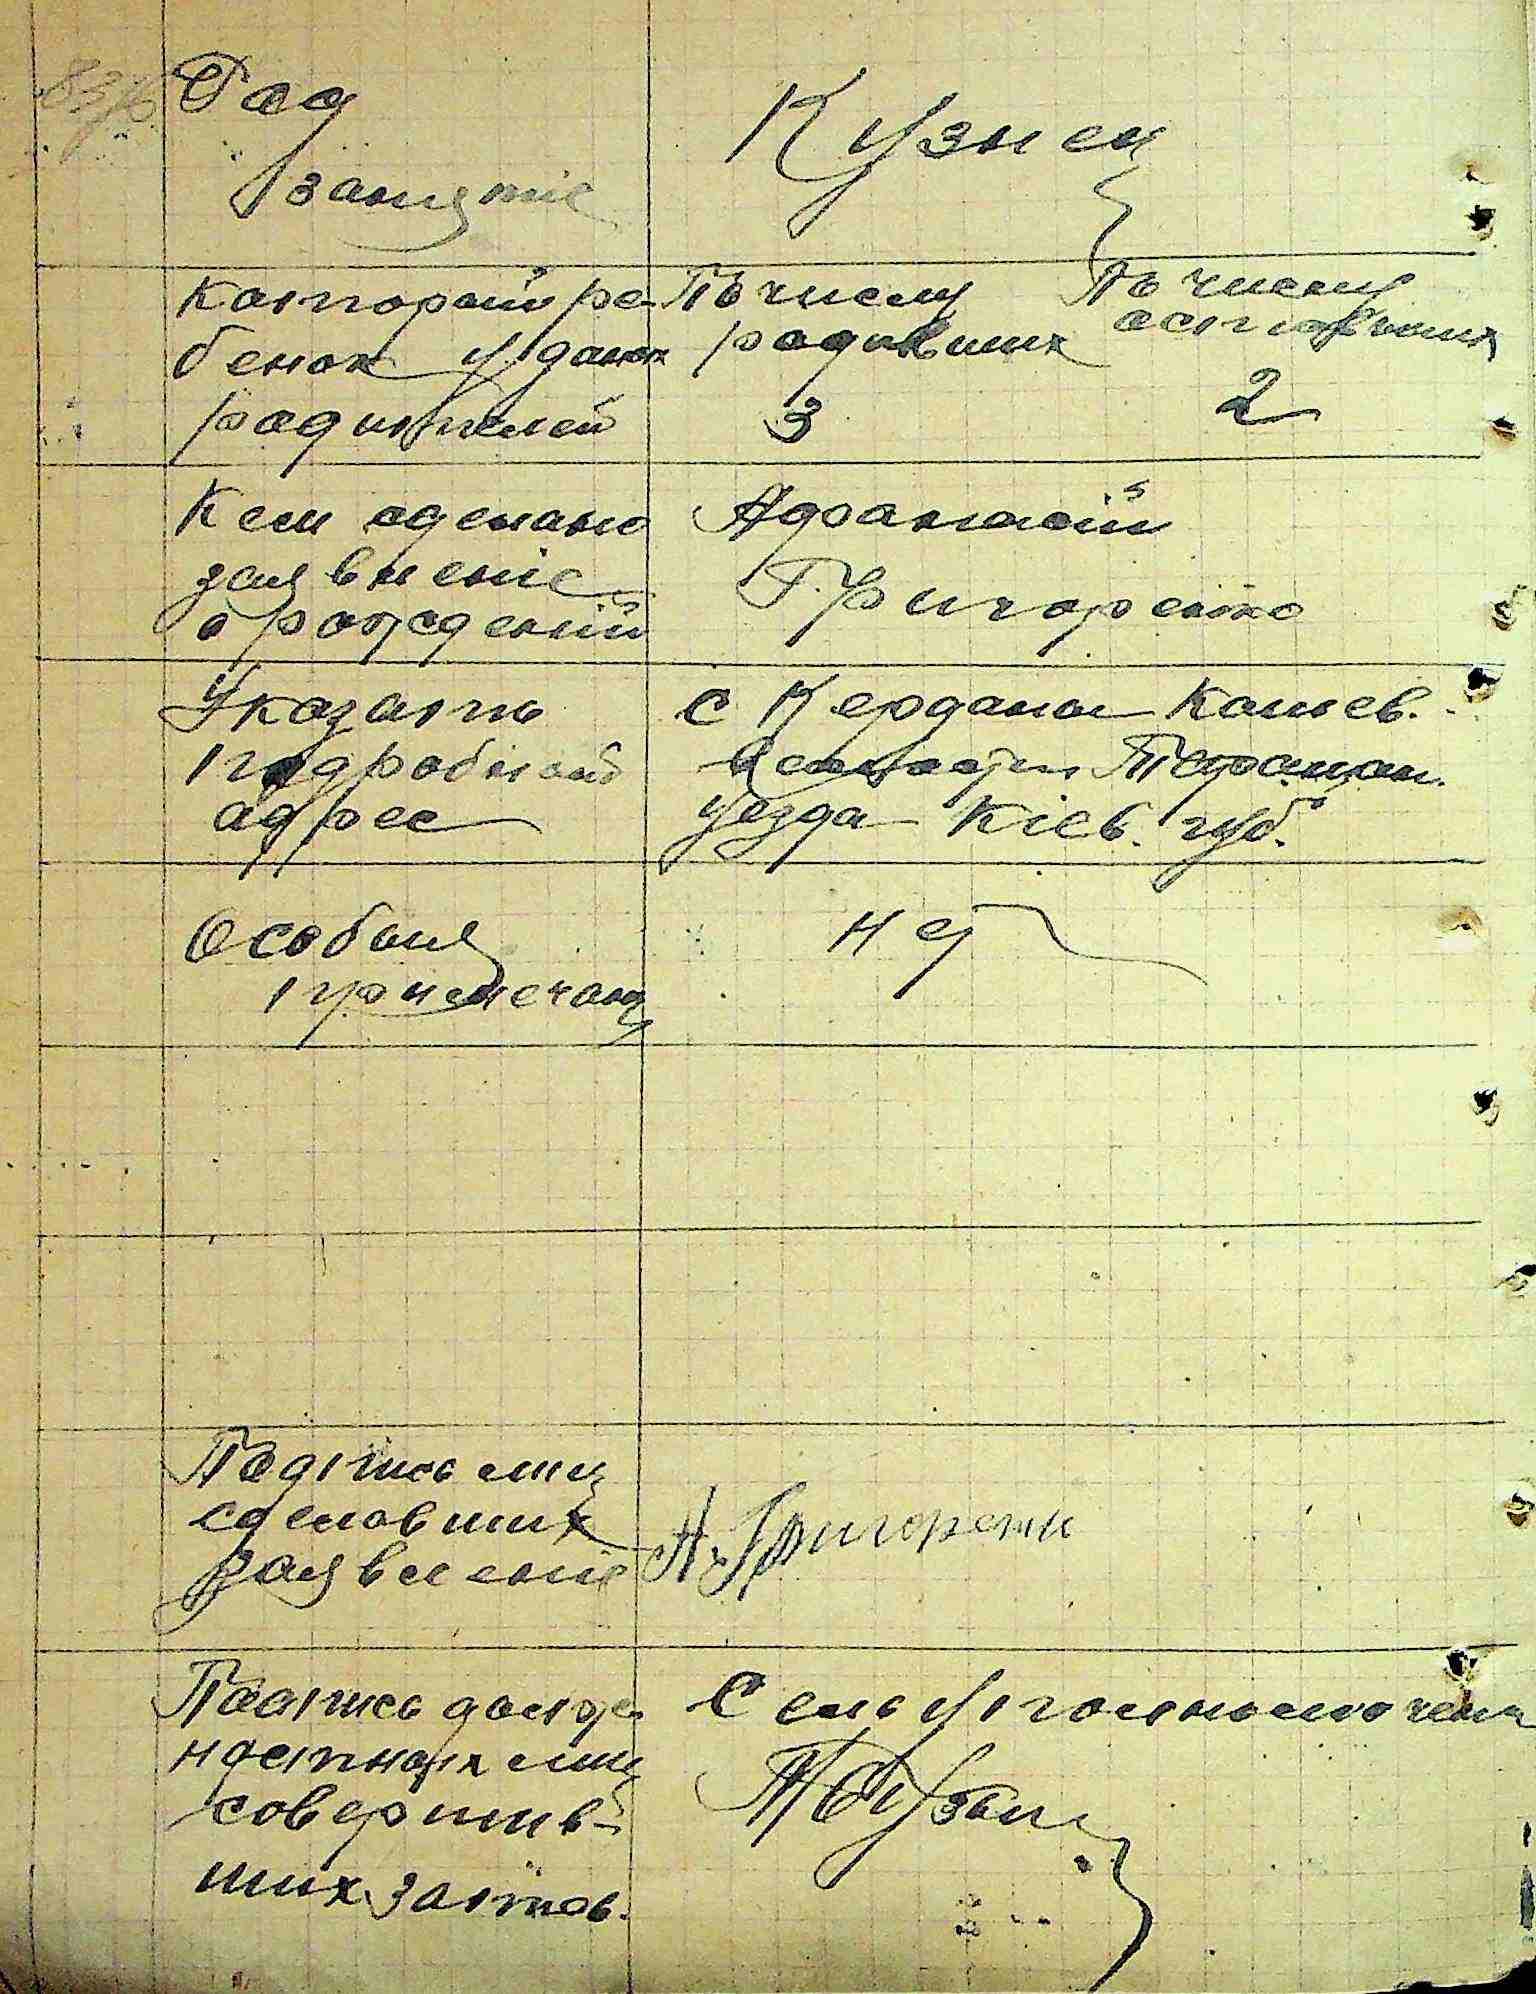 Род
занятіе
Кузнец
Который ре-
бенок у даных
родителей
По числу
родивших
3
По числу
оставших
2
Кем сделано
заявление
о рождений
Афанасій
Григоренко
Указать
подробной
адрес
с Кердана Кашев.
Волости Таращан.
уезда Кіев. губ.
Особыя
примечан
нет
Подпись лиц
сделавших
заявленіе
А. Григоренк
Подпись долж
ностных лиц
совершив-
ших запись.
Сель уполномочен